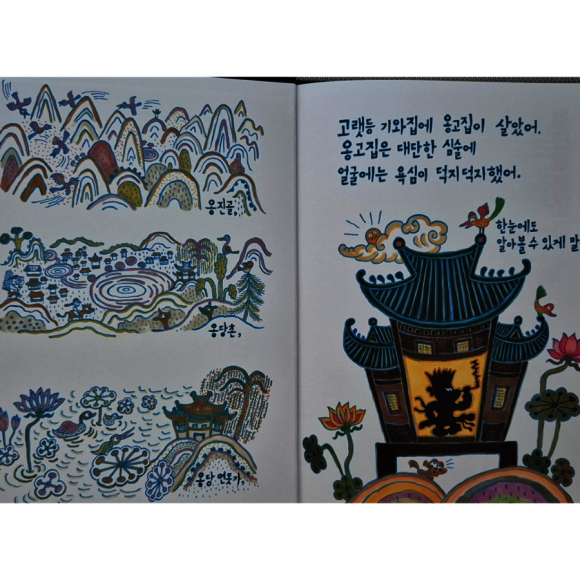 옹진골,
옹당촌,
옹당 연못가,
고랫등 기와집에 옹고집이 살았어.
옹고집은 대단한 심술에
얼굴에는 욕심이 덕지덕지했어.
한눈에도
알아볼 수 있게 말